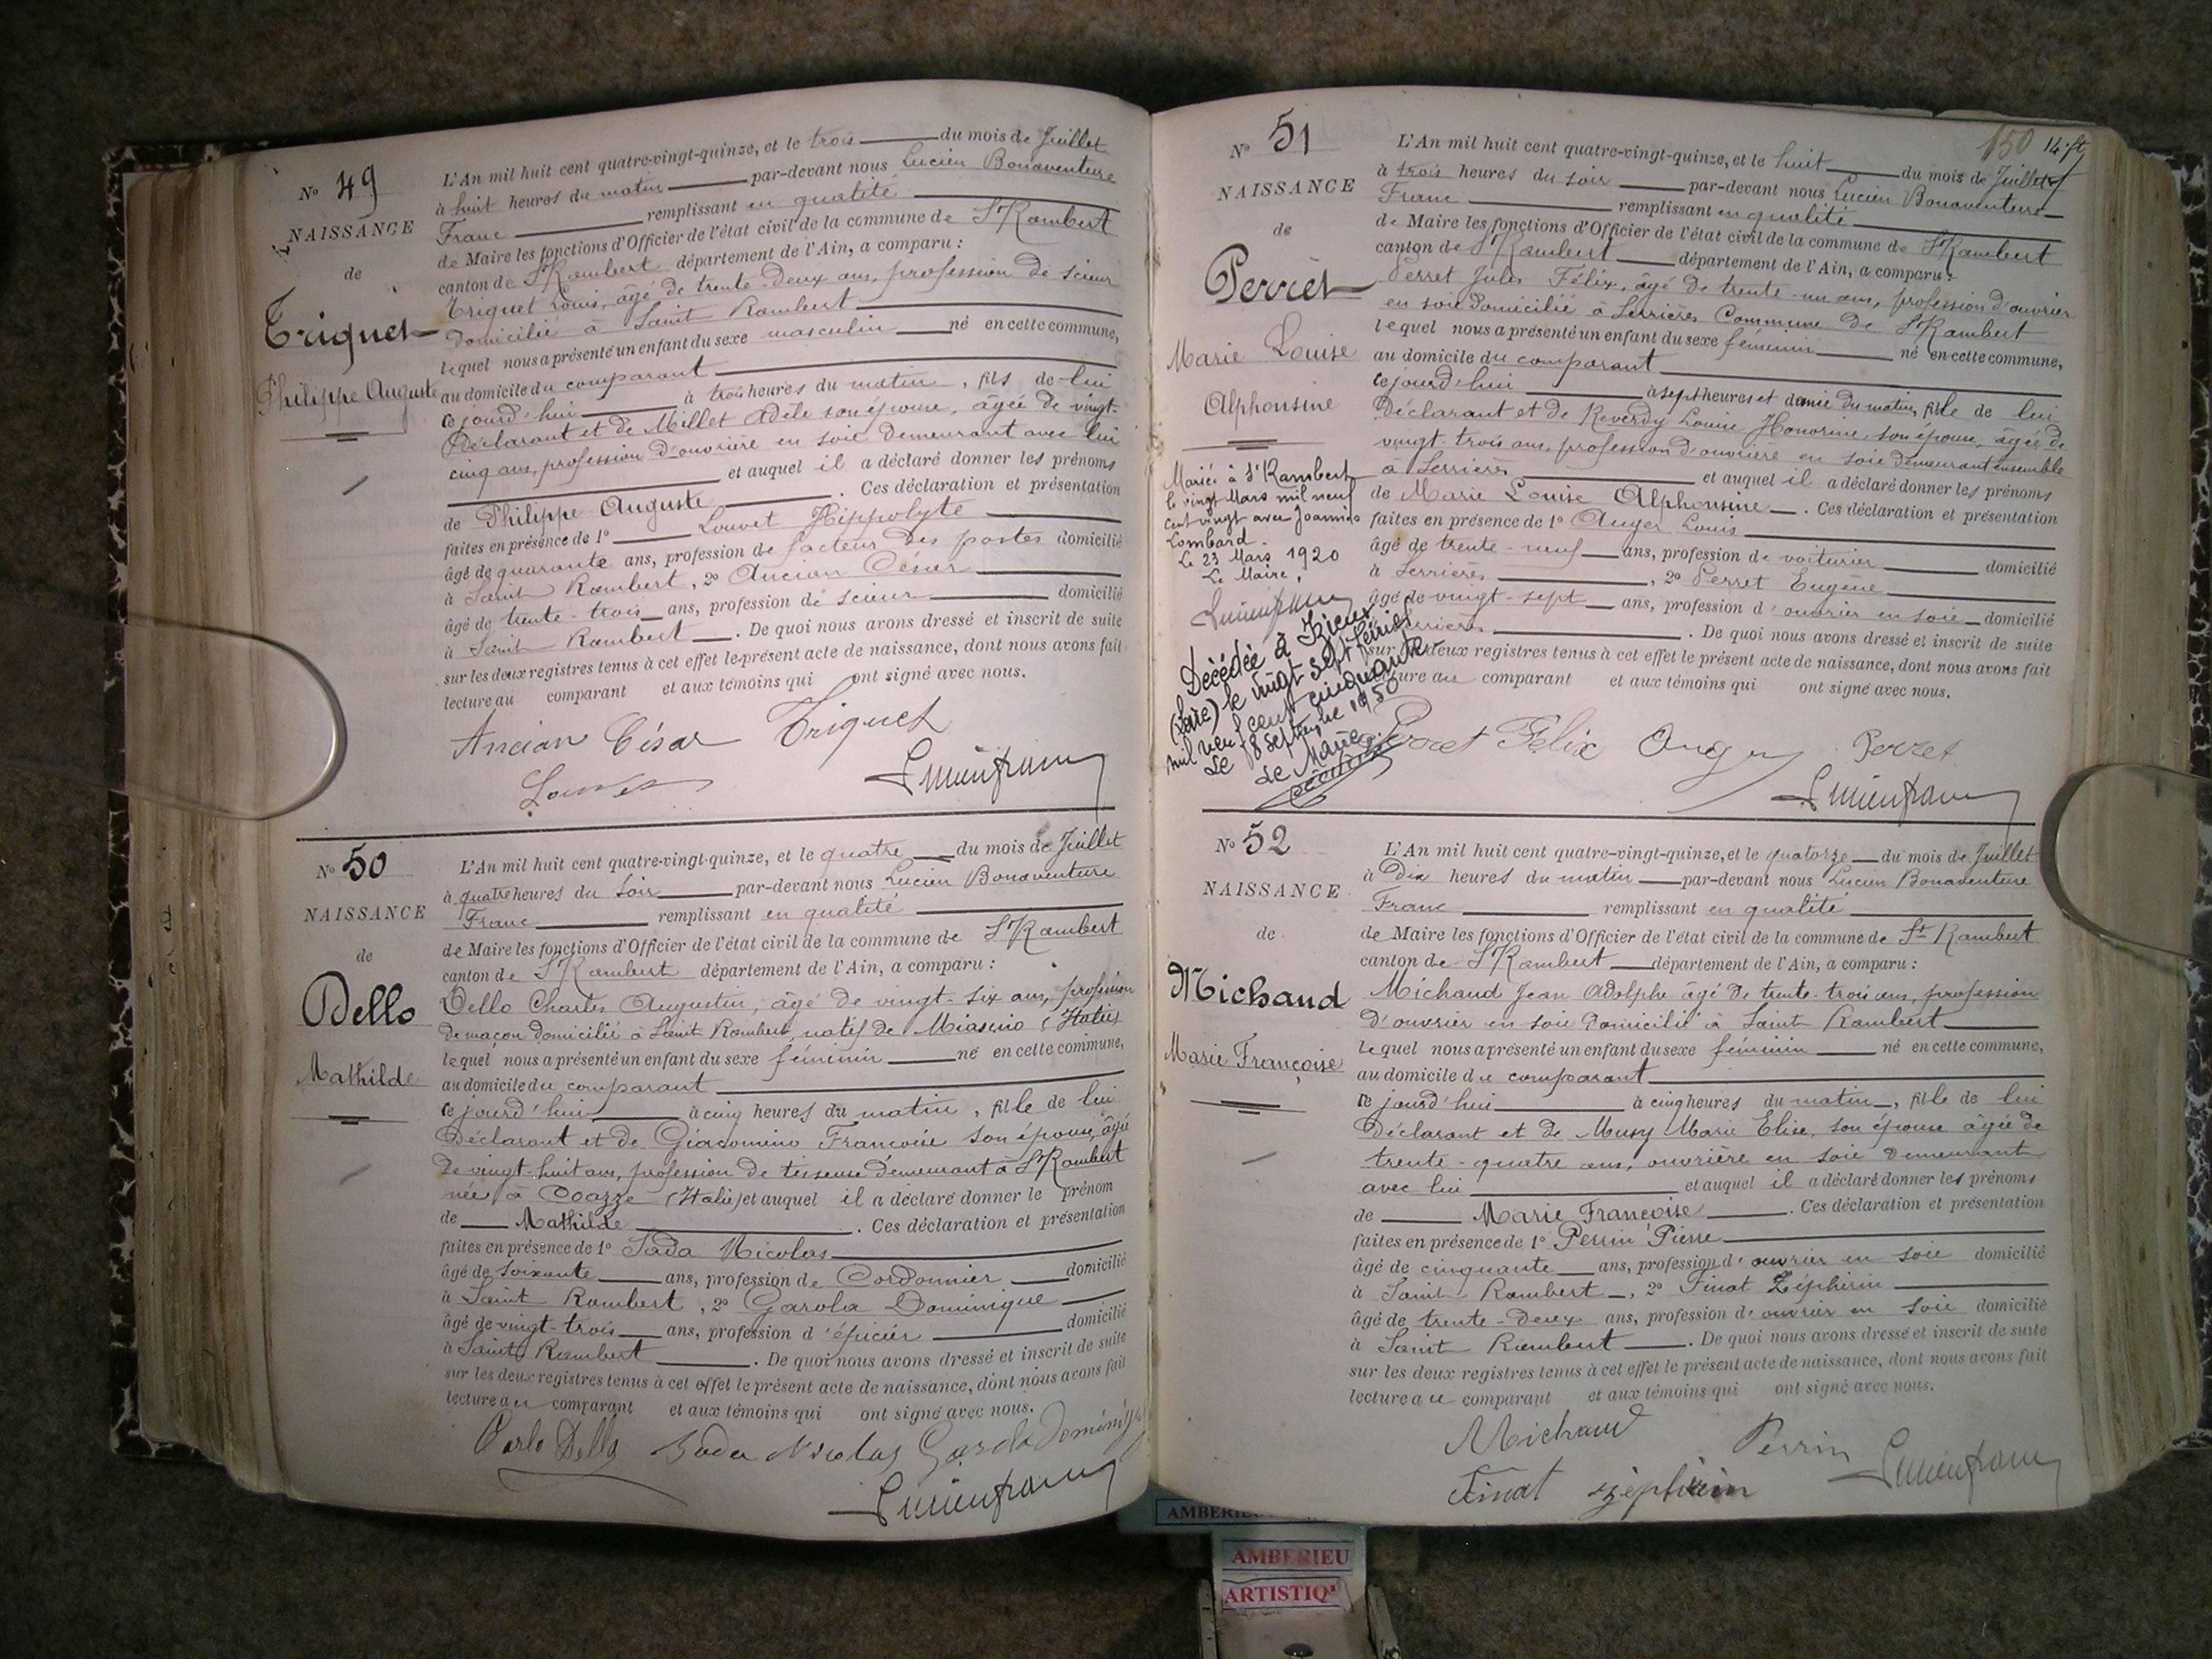 No 49
NAISSANCE
de
Triquet
Philippe Auguste
L'An mil huit cent quatre-vingt-quinze, et le trois du mois de Juillet
à huit heures du matin par-devant nous Lucien Bonaventure
Franc remplissant en qualité
de Maire les fonctions d'Officier de l'état civil de la commune de St Rambert
canton de St Rambert département de l'Ain, a comparu :
Triquet Louis, âgé de trente-deux ans, profession de scieur
domicilié à Saint Rambert
lequel nous a présenté un enfant du sexe masculin né en cette commune,
au domicile du comparant
ce jourd'hui à trois heures du matin, fils de lui
Déclarant et de Millet Adèle son épouse, âgée de vingt-
cinq ans, profession d'ouvrière en soie demeurant avec lui
et auquel il a déclaré donner les prénoms
de Philippe Auguste. Ces déclaration et présentation
faites en présence de 1º Louvet Hippolyte
âgé de quarante ans, profession de facteur des postes domicilié
à Saint Rambert, 2º Ancian César
âgé de trente-trois ans, profession de scieur domicilié
à Saint Rambert. De quoi nous avons dressé et inscrit de suite
sur les deux registres tenus à cet effet le présent acte de naissance, dont nous avons fait
lecture au comparant et aux témoins qui ont signé avec nous.
Ancian César Triquet
Louvet Lucien franc
No 50
NAISSANCE
de
Dello
Mathilde
L'An mil huit cent quatre-vingt-quinze, et le quatre du mois de Juillet
à quatre heures du soir par-devant nous Lucien Bonaventure
Franc remplissant en qualité
de Maire les fonctions d'Officier de l'état civil de la commune de St Rambert
canton de St Rambert département de l'Ain, a comparu :
Dello Charles Augustin, âgé de vingt-six ans, profession
de maçon domicilié à Saint Rambert, natif de (Italie)
lequel nous a présenté un enfant du sexe féminin né en cette commune,
au domicile du comparant
ce jourd'hui à cinq heures du matin, fille de lui
Déclarant et de Giacomino Françoise son épouse, âgée
de vingt-huit ans, profession de tisseuse demeurant à St Rambert
née à Coazze (Italie) et auquel il a déclaré donner le prénom
de Mathilde. Ces déclaration et présentation
faites en présence de 1º Sada Nicolas
âgé de soixante ans, profession de Cordonnier domicilié
à Saint Rambert, 2º Garola Dominique
âgé de vingt-trois ans, profession d'épicier domicilié
à Saint Rambert. De quoi nous avons dressé et inscrit de suite
sur les deux registres tenus à cet effet le présent acte de naissance, dont nous avons fait
lecture au comparant et aux témoins qui ont signé avec nous.
Carlo Dello Sada Nicolas Garola Dominique
Lucien franc
150
No 51
NAISSANCE
de
Perret
Marie Louise
Alphonsine
Mariée à St Rambert
le vingt Mars mil neuf
cent vingt avec Joannès
Lombard.
Le 23 Mars 1920
Le Maire,
Lucien franc
Décédée à Izieux
(Loire) le vingt sept
mil neuf cent cinquante
Le 18 septembre 1950
Le Maire
L'An mil huit cent quatre-vingt-quinze, et le huit du mois de Juillet
à trois heures du soir par-devant nous Lucien Bonaventure
Franc remplissant en qualité
de Maire les fonctions d'Officier de l'état civil de la commune de St Rambert
canton de St Rambert département de l'Ain, a comparu :
Perret Jules Félix, âgé de trente-un ans, profession d'ouvrier
en soie domicilié à Serrières Commune de St Rambert
lequel nous a présenté un enfant du sexe féminin né en cette commune,
au domicile du comparant
ce jourd'hui à sept heures et demie du matin, fille de lui
Déclarant et de Reverdy Louise Honorine, son épouse, âgée de
vingt-trois ans, profession d'ouvrière en soie demeurant ensemble
à Serrières et auquel il a déclaré donner les prénoms
de Marie Louise Alphonsine. Ces déclaration et présentation
faites en présence de 1º Auger Louis
âgé de trente-neuf ans, profession de voiturier domicilié
à Serrières, 2º Perret Eugène
âgé de vingt-sept ans, profession d'ouvrier en soie domicilié
Serrières. De quoi nous avons dressé et inscrit de suite
sur deux registres tenus à cet effet le présent acte de naissance, dont nous avons fait
lecture au comparant et aux témoins qui ont signé avec nous.
Perret Félix Auger Perret
Lucien franc
No 52
NAISSANCE
de
Michaud
Marie Françoise
L'An mil huit cent quatre-vingt-quinze, et le quatorze du mois de Juillet
à Dix heures du matin par-devant nous Lucien Bonaventure
Franc remplissant en qualité
de Maire les fonctions d'Officier de l'état civil de la commune de St Rambert
canton de St Rambert département de l'Ain, a comparu :
Michaud Jean Adolphe âgé de trente-trois ans, profession
d'ouvrier en soie domicilié à Saint Rambert
lequel nous a présenté un enfant du sexe féminin né en cette commune,
au domicile du comparant
ce jourd'hui à cinq heures du matin, fille de lui
Déclarant et de Musy Marie Elise, son épouse âgée de
trente-quatre ans, ouvrière en soie demeurant
avec lui et auquel il a déclaré donner les prénoms
de Marie Françoise. Ces déclaration et présentation
faites en présence de 1º Perrin Pierre
âgé de cinquante ans, profession d'ouvrier en soie domicilié
à Saint Rambert, 2º Finat Zéphirin
âgé de trente-deux ans, profession d'ouvrier en soie domicilié
à Saint Rambert. De quoi nous avons dressé et inscrit de suite
sur les deux registres tenus à cet effet le présent acte de naissance, dont nous avons fait
lecture au comparant et aux témoins qui ont signé avec nous.
Michaud Perrin Lucien franc
Finat zéphirin
AMBERIEU
AMBERIEU
ARTISTIQ